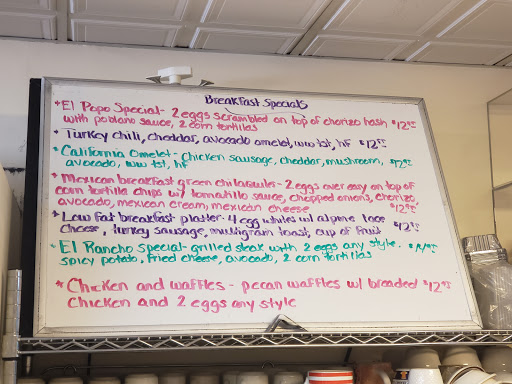 Breakfast Specials
*El Popo Special- 2 eggs scrambled on top of chorizo hash $12.95
with poblano sauce, 2 corn tortillas
*Turkey chili, cheddar, avocado omelet, ww tst, hf $12.95
*California Omelet- Chicken sausage, cheddar, mushroom,
avocado, ww tst, hf $12.95
*Mexican breakfast green chilaquiles- 2 eggs over easy on top of
corn tortilla chips w/ tomatillo sauce, chopped onions, chorizo,
avocado, mexican cream, mexican cheese $12.95
*Low fat breakfast platter- 4 egg whites w/ alpine lace
cheese, turkey sausage, multigrain toast, cup of fruit $12.95
*El Rancho Special- grilled steak with 2 eggs any style.
spicy potato, fried cheese, avocado, 2 corn tortillas
*Chicken and waffles - pecan waffles w/ breaded $12.95
Chicken and 2 eggs any style